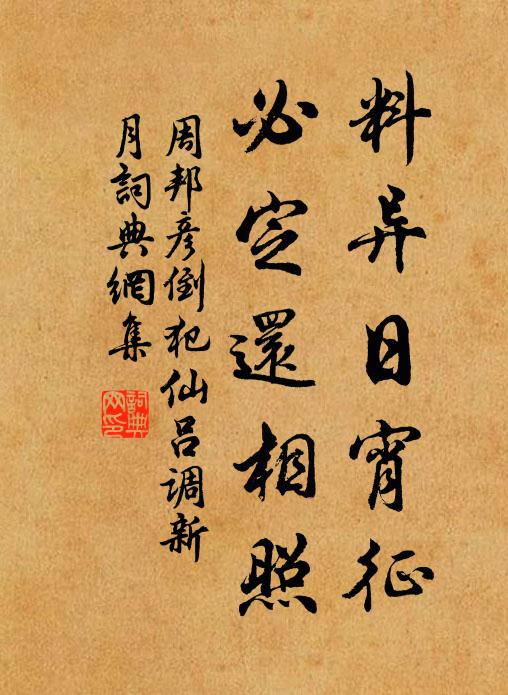 料异日宵征
必定還相照
周邦彦倒犯仙吕调新
月詞典網集
詞典
网印